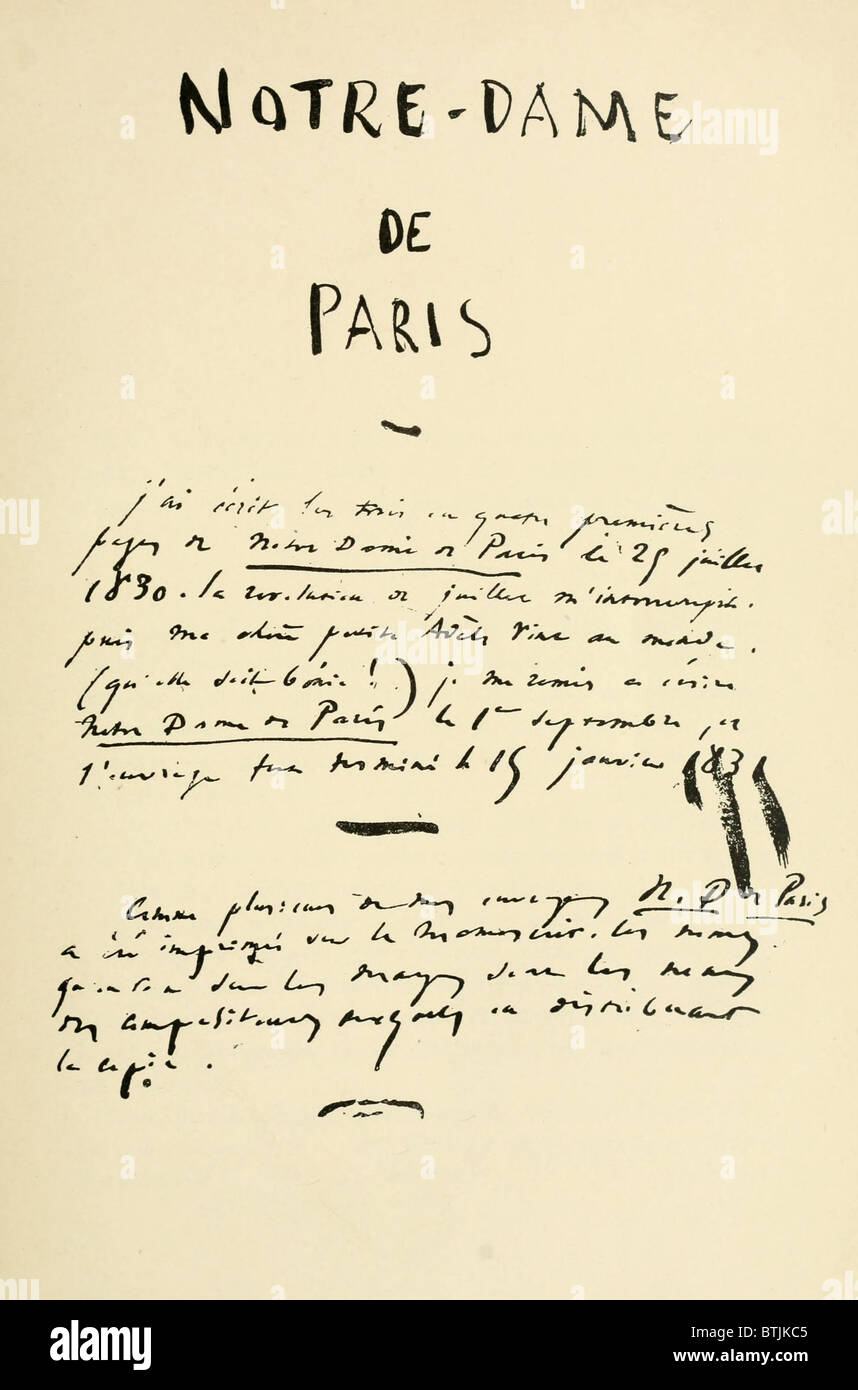 NOTRE-DAME
DE
PARIS
j'ai écrit les trois ou quatre premières
pages de Notre Dame de Paris le 25 juillet
1830. la révolution de juillet m'interrompit.
puis ma chère petite Adèle vint au monde.
(qu'elle soit bénie!) je me remis à écrire
Notre Dame de Paris le 1er septembre, et
l'ouvrage fut terminé le 15 janvier 1831
Comme plusieurs de mes ouvrages N. D de Paris
a été imprimé sur le manuscrit. les noms
qu'on voit dans les marges sont les noms
des compositeurs auxquels on distribuait
la copie.
alamy
Image ID: BTJKC5
www.alamy.com